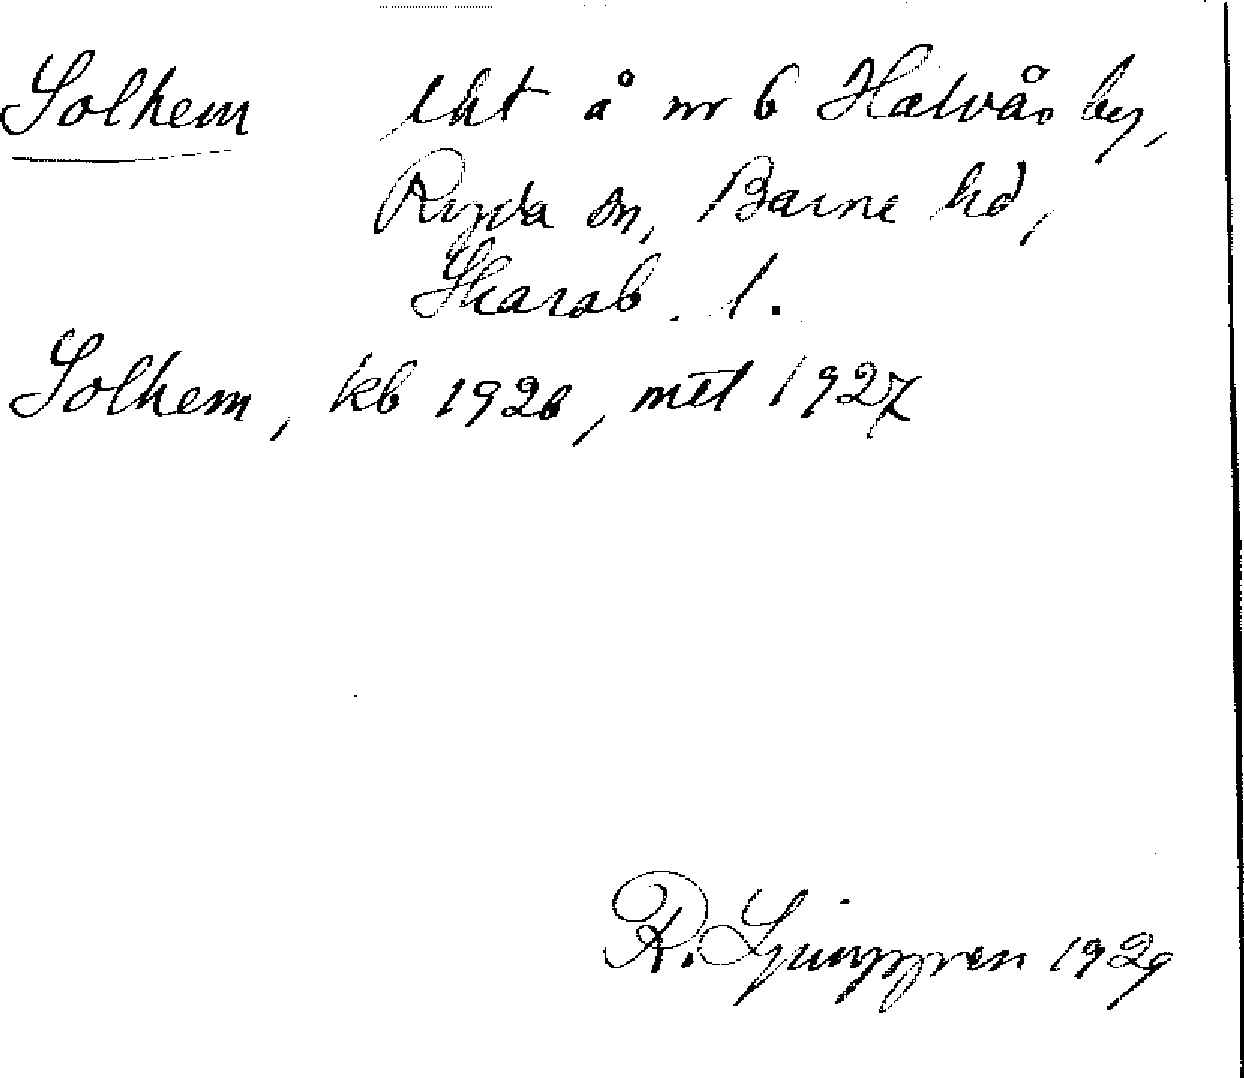 Solhem lht å nr 6 Halvås by,
Ryda sn, Barne hd,
Skarab. l.
Solhem, kb 1926, mtl 1927
R. Ljunggren 1929